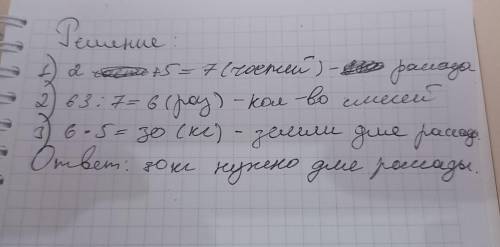 Решение:
1) 2 +5 = 7 (частей) - рассада
2) 63 : 7 = 6 (раз) - кол-во смесей
3) 6 · 5 = 30 (кг) - земли для рассад.
Ответ: 30 кг нужно для рассады.